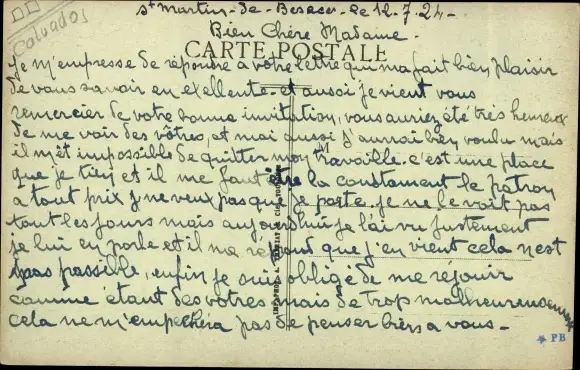 Calvados
St Martin-de-Besaces-le 12.7.24-
Bien Chère Madame-
CARTE POSTALE
je m'empresse de répondre a votre lettre qui m'a fait bien plaisir
de vous savoir en exellente et aussi je vient vous
remercier de votre bonne invitation, vous auriez été très heureux
de me voir des vôtres, et mai aussi j'aurrai bien voulu mais
il m'ét impossible de quitter mon travaille. c'est une place
que je tien et il me faut être la constament le patron
a tout prix ne veux pas que je parte. je ne le voit pas
tout les jours mais aujourd'hui je l'ai vu justement
je lui en parle et il me répond que j'en vient cela n'est
pas possible, enfin je suis obligé de me réjouir
comme étant des votres mais de trop malheureusement
cela ne m'empechera pas de penser bien a vous-
PB